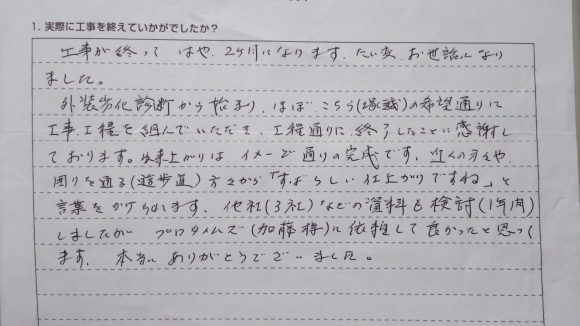 1. 実際に工事を終えていかがでしたか?
工事が終って はや、2ヶ月になります、たい変、お世話になり
ました。
外装劣化診断から始まり、ほぼ、こちら(塚越)の希望通りに
工事、工程を組んでいただき、工程通りに、終了したことに感謝し
ております。出来上がりは イメージ通りの完成です、近くの方々や、
周りを通る(遊歩道)方々から「すばらしい仕上がりですね」と
言葉をかけられます、他社(3社)などの資料も検討(1年間)
しましたが プロタイムズ(加藤様)に依頼して良かったと思って
ます、 本当に ありがとうございました。